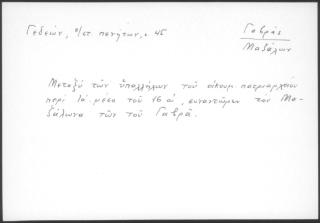 Γεδεών, π/στ. πενήτων, σ. 45
Γαβρᾶς
Μαδάλων
Μεταξὺ τῶν ὑπαλλήλων τοῦ οἰκουμ. πατριαρχείου
περὶ τὰ μέσα τοῦ 16 α΄, συναντῶμεν τὸν Μα-
δάλωνα τῶν τοῦ Γαβρᾶ.